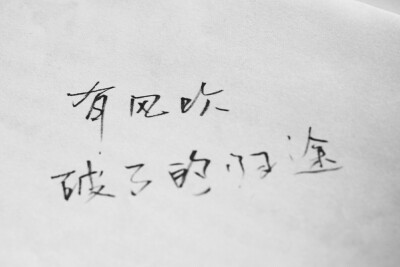 有风吹
破了的归途